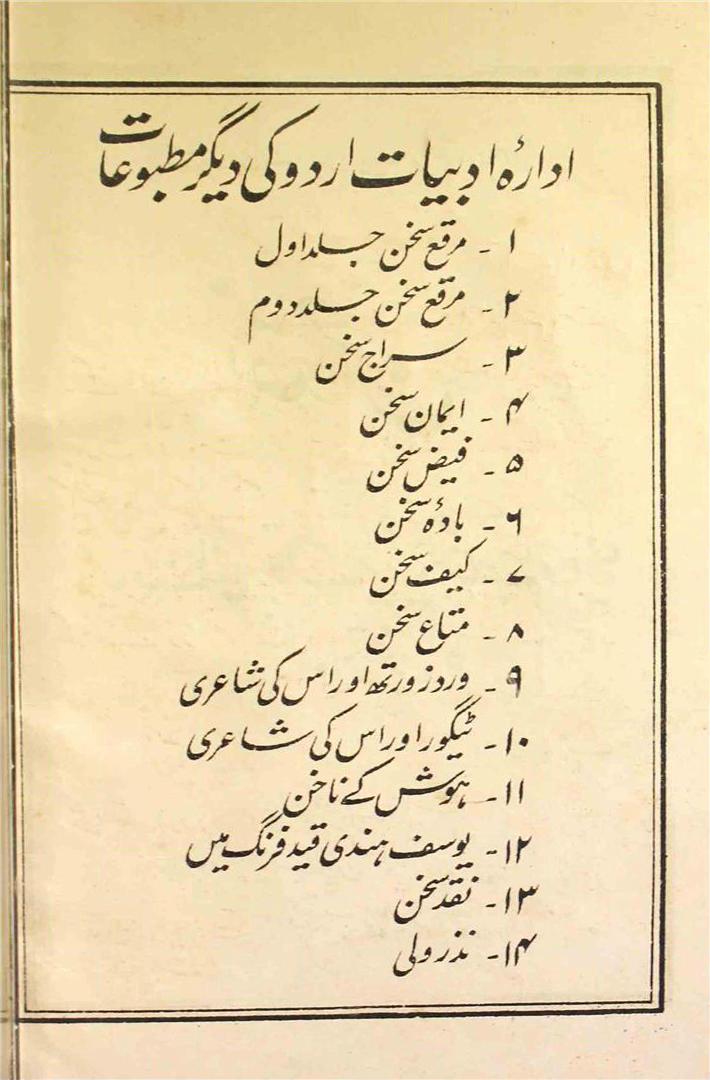 ادارۂ ادبیات اردو کی دیگر مطبوعات
۱ - مرقع سخن جلد اول
۲ - مرقع سخن جلد دوم
۳ - سراج سخن
۴ - ایمان سخن
۵ - فیض سخن
۶ - بادۂ سخن
۷ - کیف سخن
۸ - متاع سخن
۹ - ورڈزورتھ اور اس کی شاعری
۱۰ - ٹیگور اور اس کی شاعری
۱۱ - ہوش کے ناخن
۱۲ - یوسف ہندی قید فرنگ میں
۱۳ - نقد سخن
۱۴ - نذر ولی